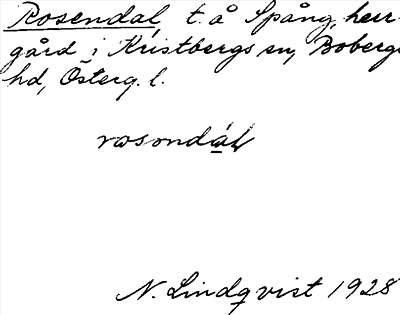 Rosendal, t. å Spång, herr-
gård i Kristbergs sn, Bobergs
hd, Österg. l.
rosondál
N. Lindqvist 1928